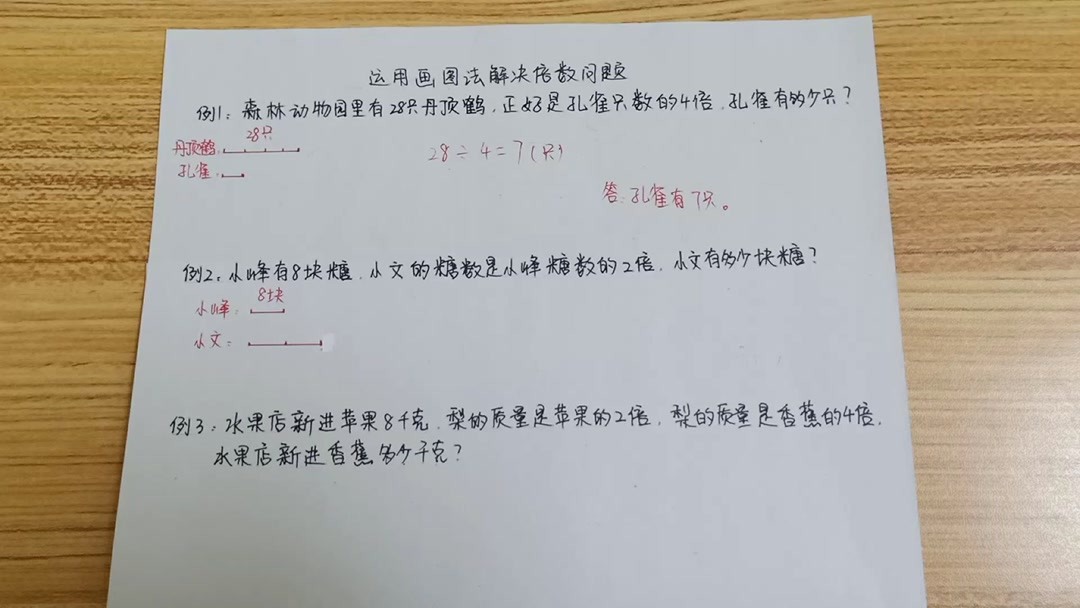 运用画图法解决倍数问题
例1：森林动物园里有28只丹顶鹤，正好是孔雀只数的4倍，孔雀有多少只？
28只
丹顶鹤：
孔雀：
28÷4=7(只)
答：孔雀有7只。
例2：小峰有8块糖，小文的糖数是小峰糖数的2倍，小文有多少块糖？
8块
小峰：
小文：
例3：水果店新进苹果8千克，梨的质量是苹果的2倍，梨的质量是香蕉的4倍，
水果店新进香蕉多少千克？